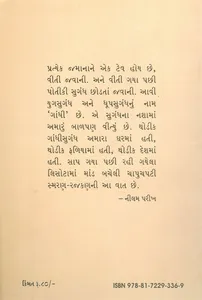 પ્રત્યેક જમાનાને એક ટેવ હોય છે,
વીતી જવાની. અને વીતી ગયા પછી
પોતીકી સુગંધ છોડતાં જવાની. આવી
યુગસુગંધ અને ધૂપસુગંધનું નામ
'ગાંધી' છે. એ સુગંધના નશામાં
અમારું બાળપણ વીત્યું છે. થોડીક
ગાંધીસુગંધ અમારા ઘરમાં હતી,
થોડીક ફળિયામાં હતી, થોડીક દેશમાં
હતી. સાપ ગયા પછી રહી ગયેલા
લિસોટામાં માંડ બચેલી ચપુચપટી
સ્મરણ-રજકણની આ વાત છે.
– નીલમ પરીખ
કિંમત રૂ.૮૦/–
ISBN 978-81-7229-336-9